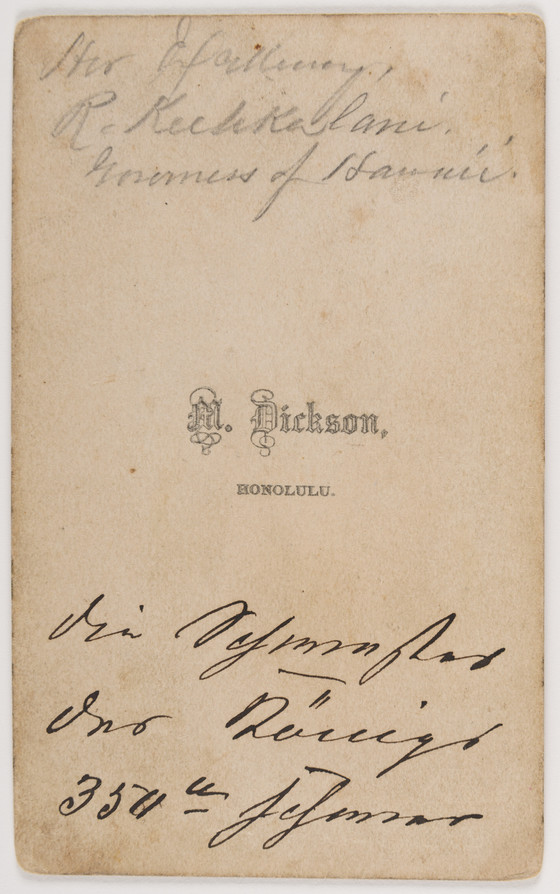 Her Excellency,
R. Keelikolani.
Governess of Hawaii.
M. Dickson,
HONOLULU.
die Schwester
des Königs
350 ℔ schwer